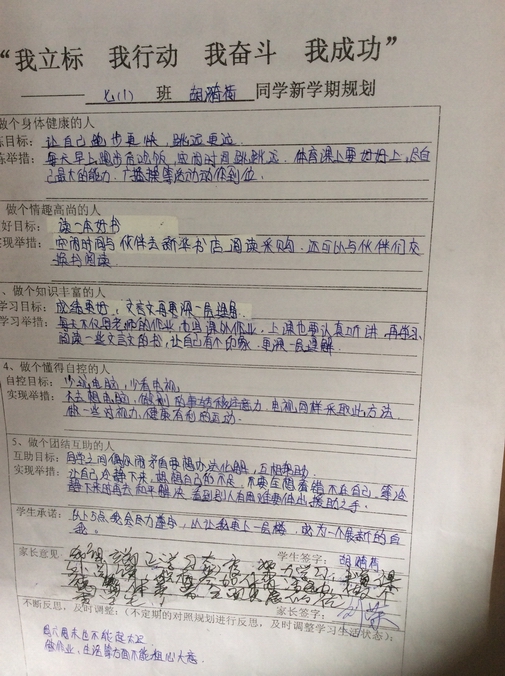 “我立标 我行动 我奋斗 我成功”
七(1) 班 胡漪荷 同学新学期规划
做个身体健康的人
目标: 让自己跑步更快,跳远更远.
举措: 每天早上跑步后吃饭,空闲时间跳跳远.体育课上要好好上,尽自
己最大的能力.广播操等活动动作到位.
做个情趣高尚的人
好目标: 读一本好书
实现举措: 空闲时间与伙伴去新华书店阅读采购.还可以与伙伴们交
换书阅读.
、做个知识丰富的人
学习目标: 成绩更好,文言文再更深一层理解.
学习举措: 每天不仅有老师的作业,也有课外作业,上课也要认真听讲,再学习
阅读一些文言文的书,让自己有个印象,更深一层理解.
4、做个懂得自控的人
自控目标: 少玩电脑,少看电视.
实现举措: 不去想电脑,做别的事转移注意力.电视同样采取此方法
做一些对视力,健康有利的运动.
5、做个团结互助的人
互助目标: 同学之间偶尔有矛盾要想办法化解,互相帮助.
实现举措: 让自己冷静下来,想想自己的不足,不要全想着错不在自己,等冷
静下来后再去和平解决.看到别人有困难要伸出援助之手.
学生承诺: 以上5点我会尽力遵守,从让我更上一层楼,成为一个最新的自
我。
家长意见 学生签字: 胡漪荷
家长签字:
不断反思,及时调整:(不定期的对照规划进行反思,及时调整学习生活状态):
周六周末也不能起太迟
做作业,生活等方面不能粗心大意.